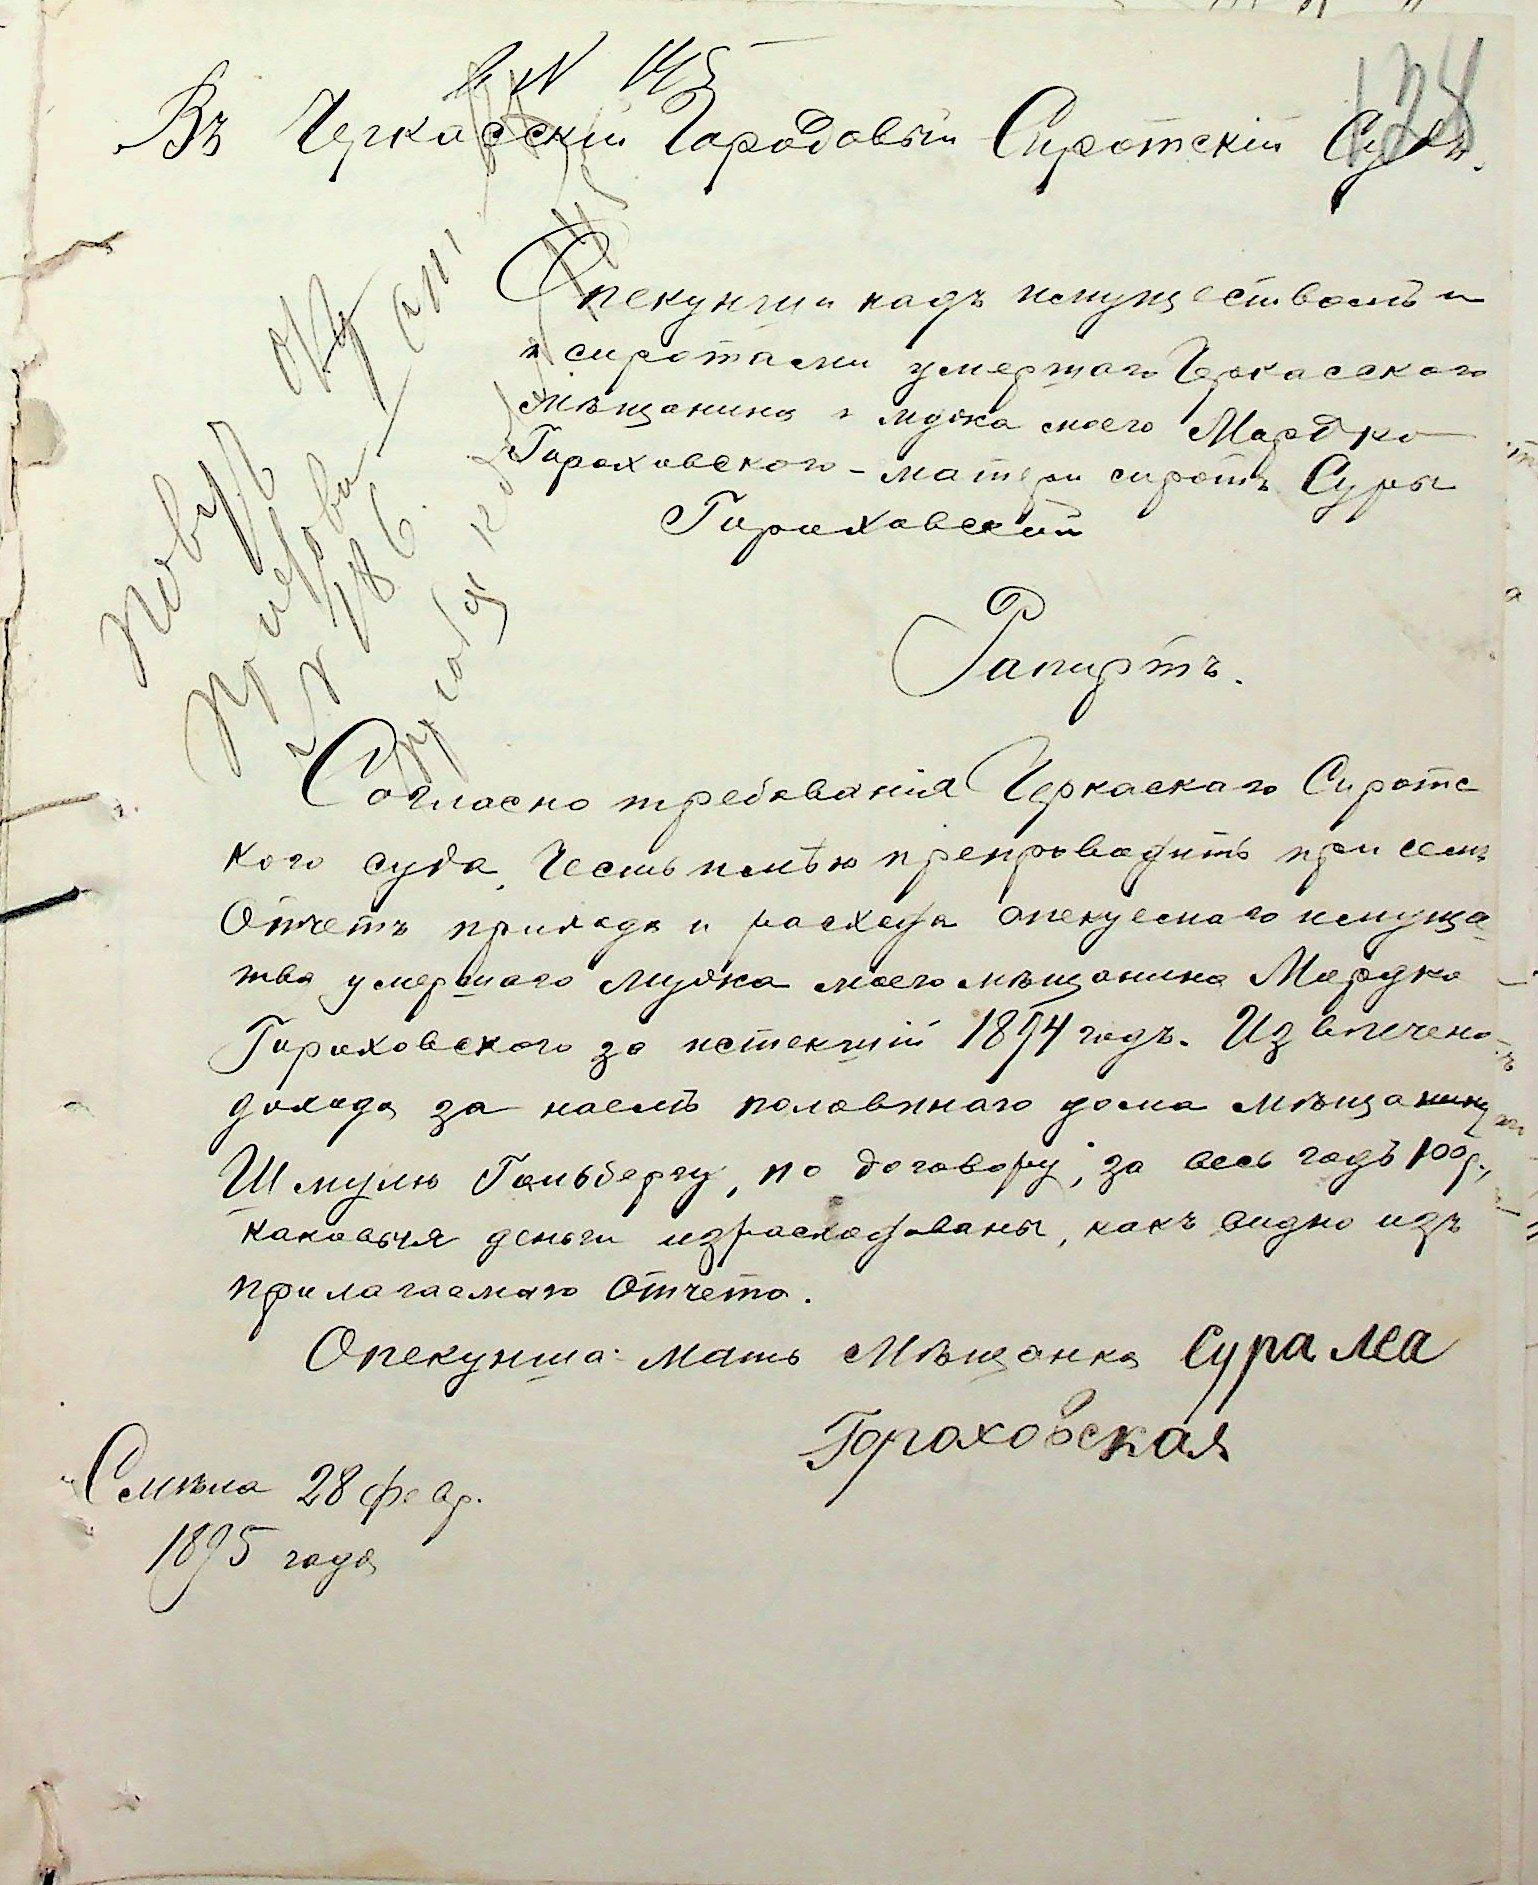 № 145
128
Въ Черкасскій Городовый Сиротскій Судъ.
Опекунши надъ имуществомъ и
и сиротами умершаго Черкасского
мѣщанина и мужа моего Мордко
Гороховского - матери сиротъ Суры
Гороховской
Рапортъ.
Согласно требованія Черкаскаго Сиротс
кого суда, Честь имѣю препроводить при семъ
Отчетъ прихода и расхода опекунснаго имуще
тва умершаго мужа моего мѣщанина Мордко
Гороховского за истекший 1894 годъ.
дохода за наемъ половинаго дома мѣщанину
Шмулю Гольбергу, по договору, за весь годъ 100 р.,
каковыя деньги израсходованы, какъ видно изъ
прилагаемаго Отчета.
Опекунша-мать Мѣщанка Сура Леа
Гороховская
Смѣла 28 февр.
1895 года